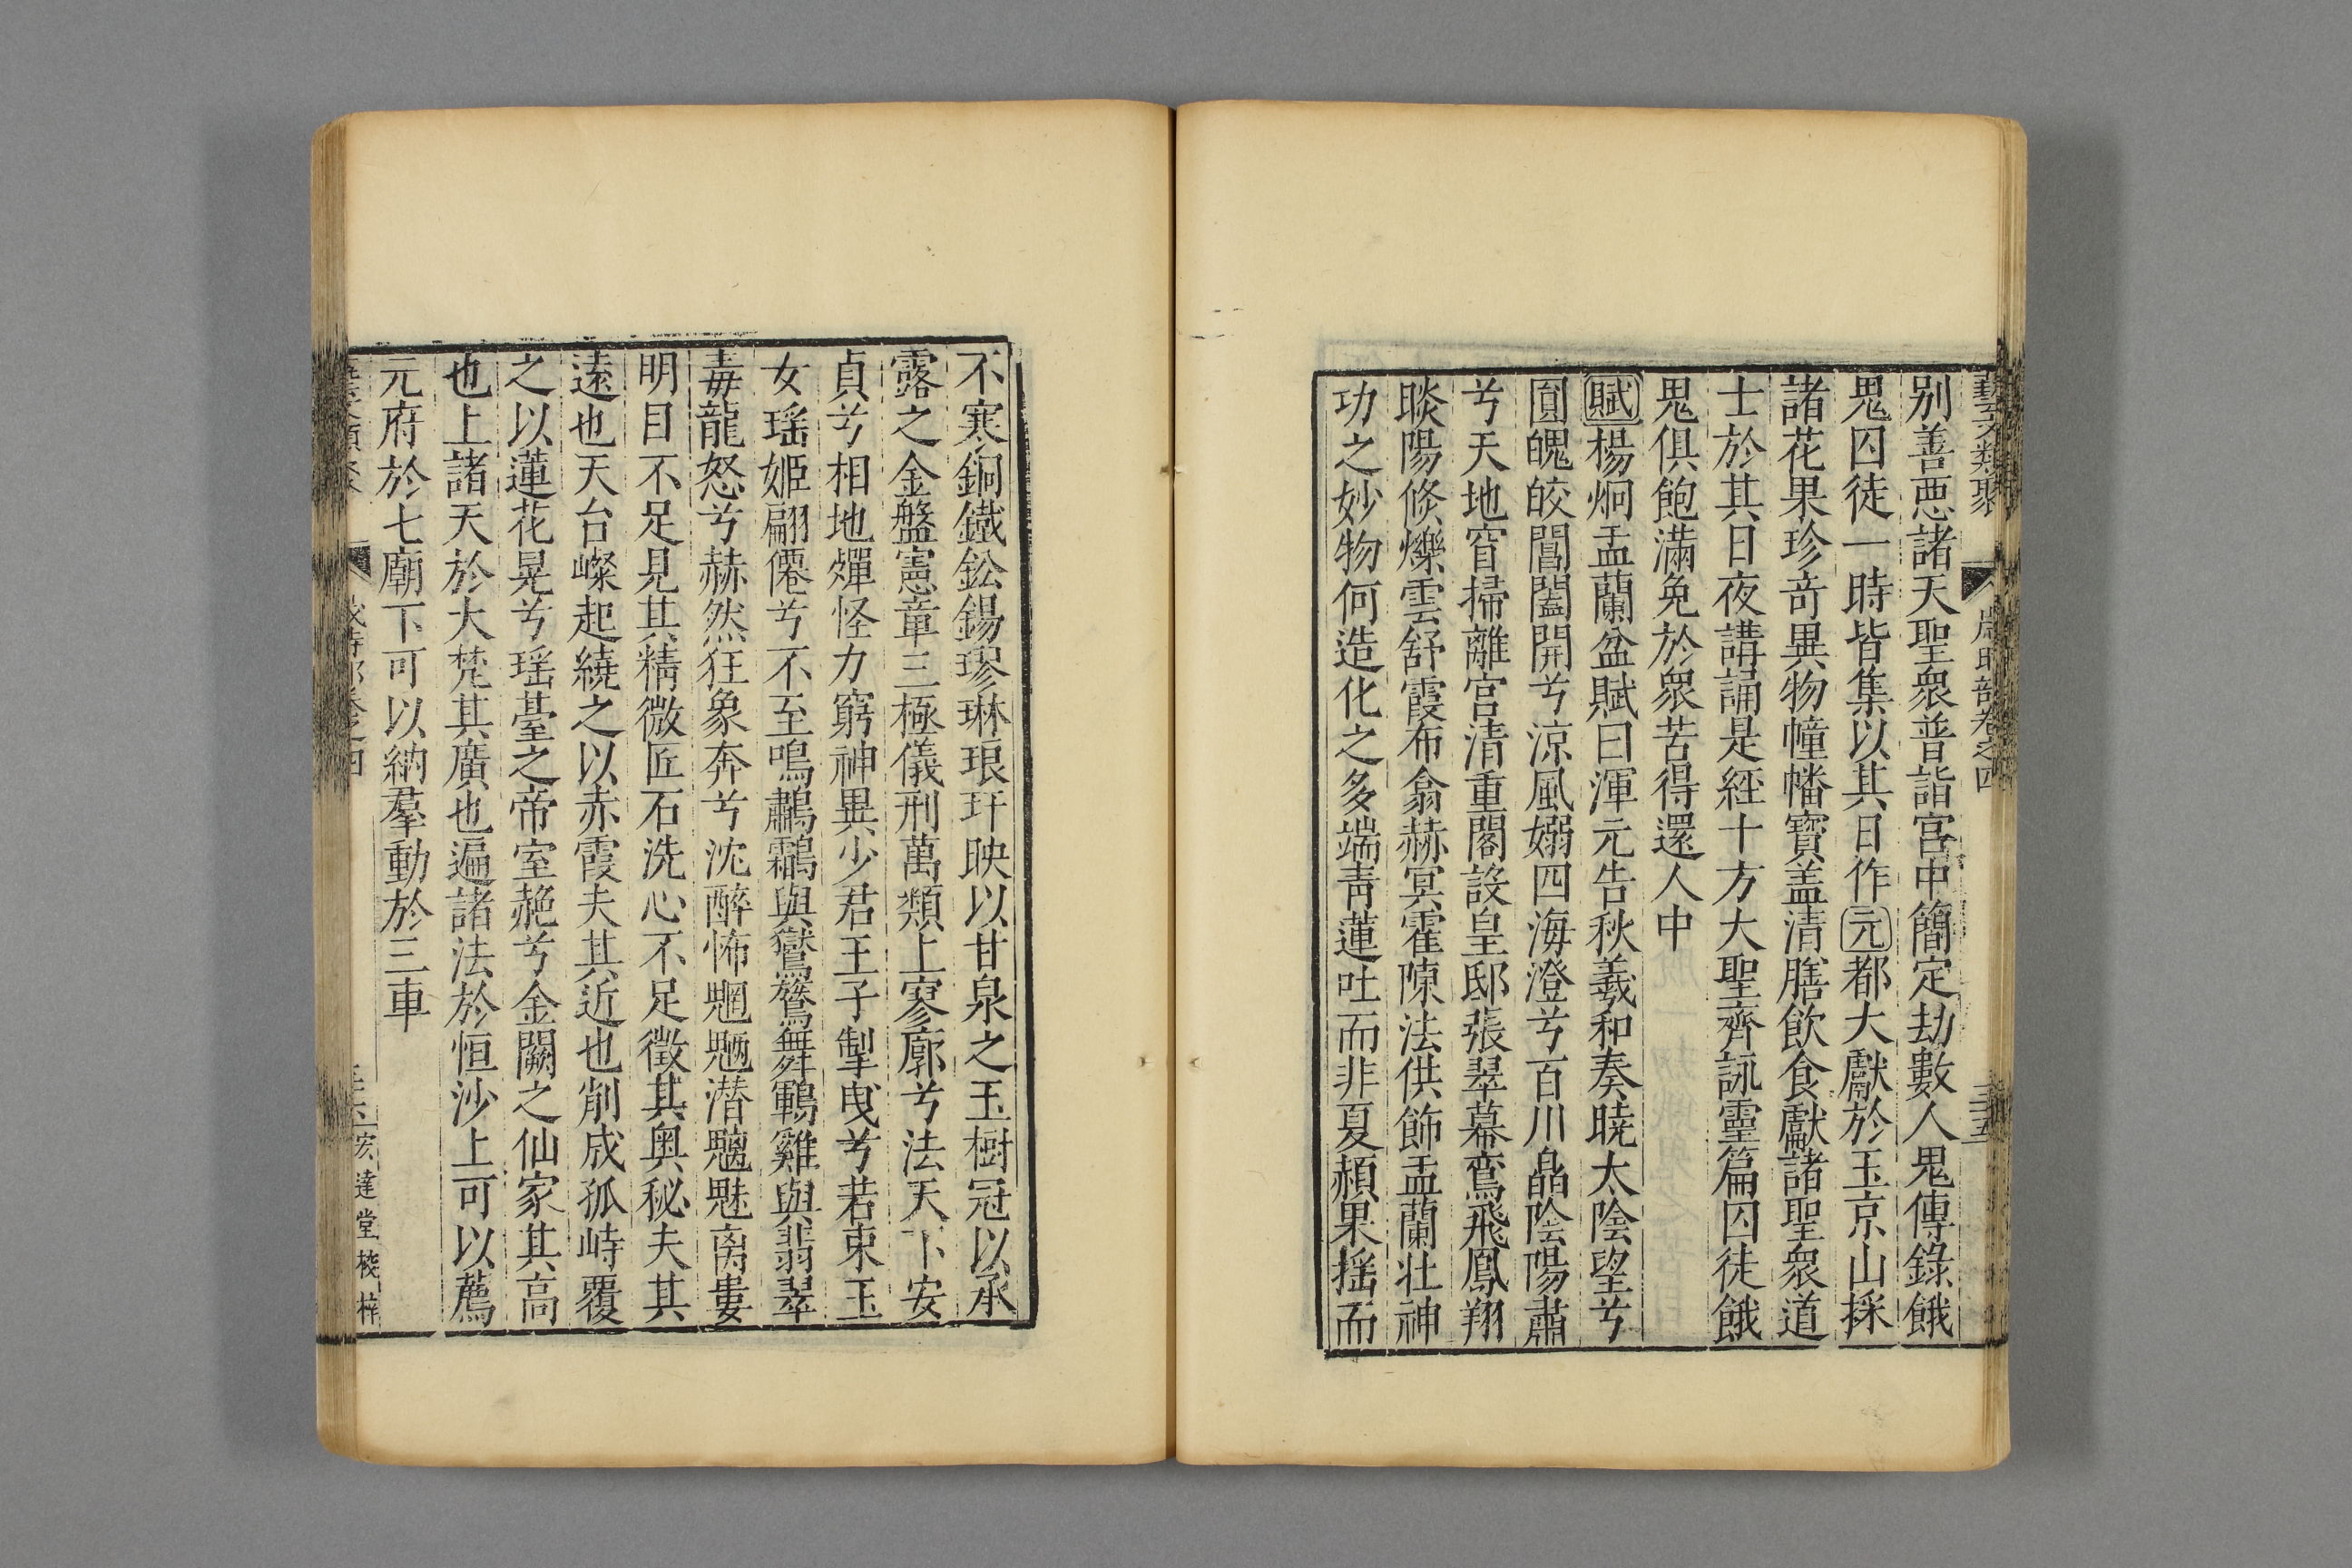 藝文類聚 歲時部卷之四 三十五
别善惡諸天聖衆普詣宫中簡定劫數人鬼傳錄餓
鬼囚徒一時皆集以其日作元都大獻於玉京山採
諸花果珍竒異物幢幡寶盖清膳飲食獻諸聖衆道
士於其日夜講誦是經十方大聖齊詠靈篇囚徒餓
鬼俱飽滿免於衆苦得還人中
賦楊炯盂蘭盆賦曰渾元告秋羲和奏曉太陰望兮
圓魄皎閶闔開兮涼風嫋四海澄兮百川皛陰陽肅
兮天地窅掃離宫清重閣設皇邸張翠幕鸞飛鳳翔
晱陽倐爍雲舒霞布翕赫冥霍陳法供飾盂蘭壯神
功之妙物何造化之多端青蓮吐而非夏頳果揺而
不寒銅鐵鈆錫璆琳琅玕映以甘泉之玉樹冠以承
露之金盤憲章三極儀刑萬類上寥廓兮法天下安
貞兮相地殫怪力窮神異少君王子掣曵兮若束玉
女瑶姬翩僊兮不至鳴鷫鸘與鸑鷟舞鶤雞與翡翠
毒龍怒兮赫然狂象奔兮沈醉怖魍魎潜魑魅离婁
明目不足見其精微匠石洗心不足徵其奥秘夫其
逺也天台嶫起繞之以赤霞夫其近也削成孤峙覆
之以蓮花晃兮瑶臺之帝室赩兮金闕之仙家其高
也上諸天於大梵其廣也遍諸法於恒沙上可以薦
元府於七廟下可以納羣動於三車
藝文類聚 歲時部卷之四 三十六 宏達堂校梓